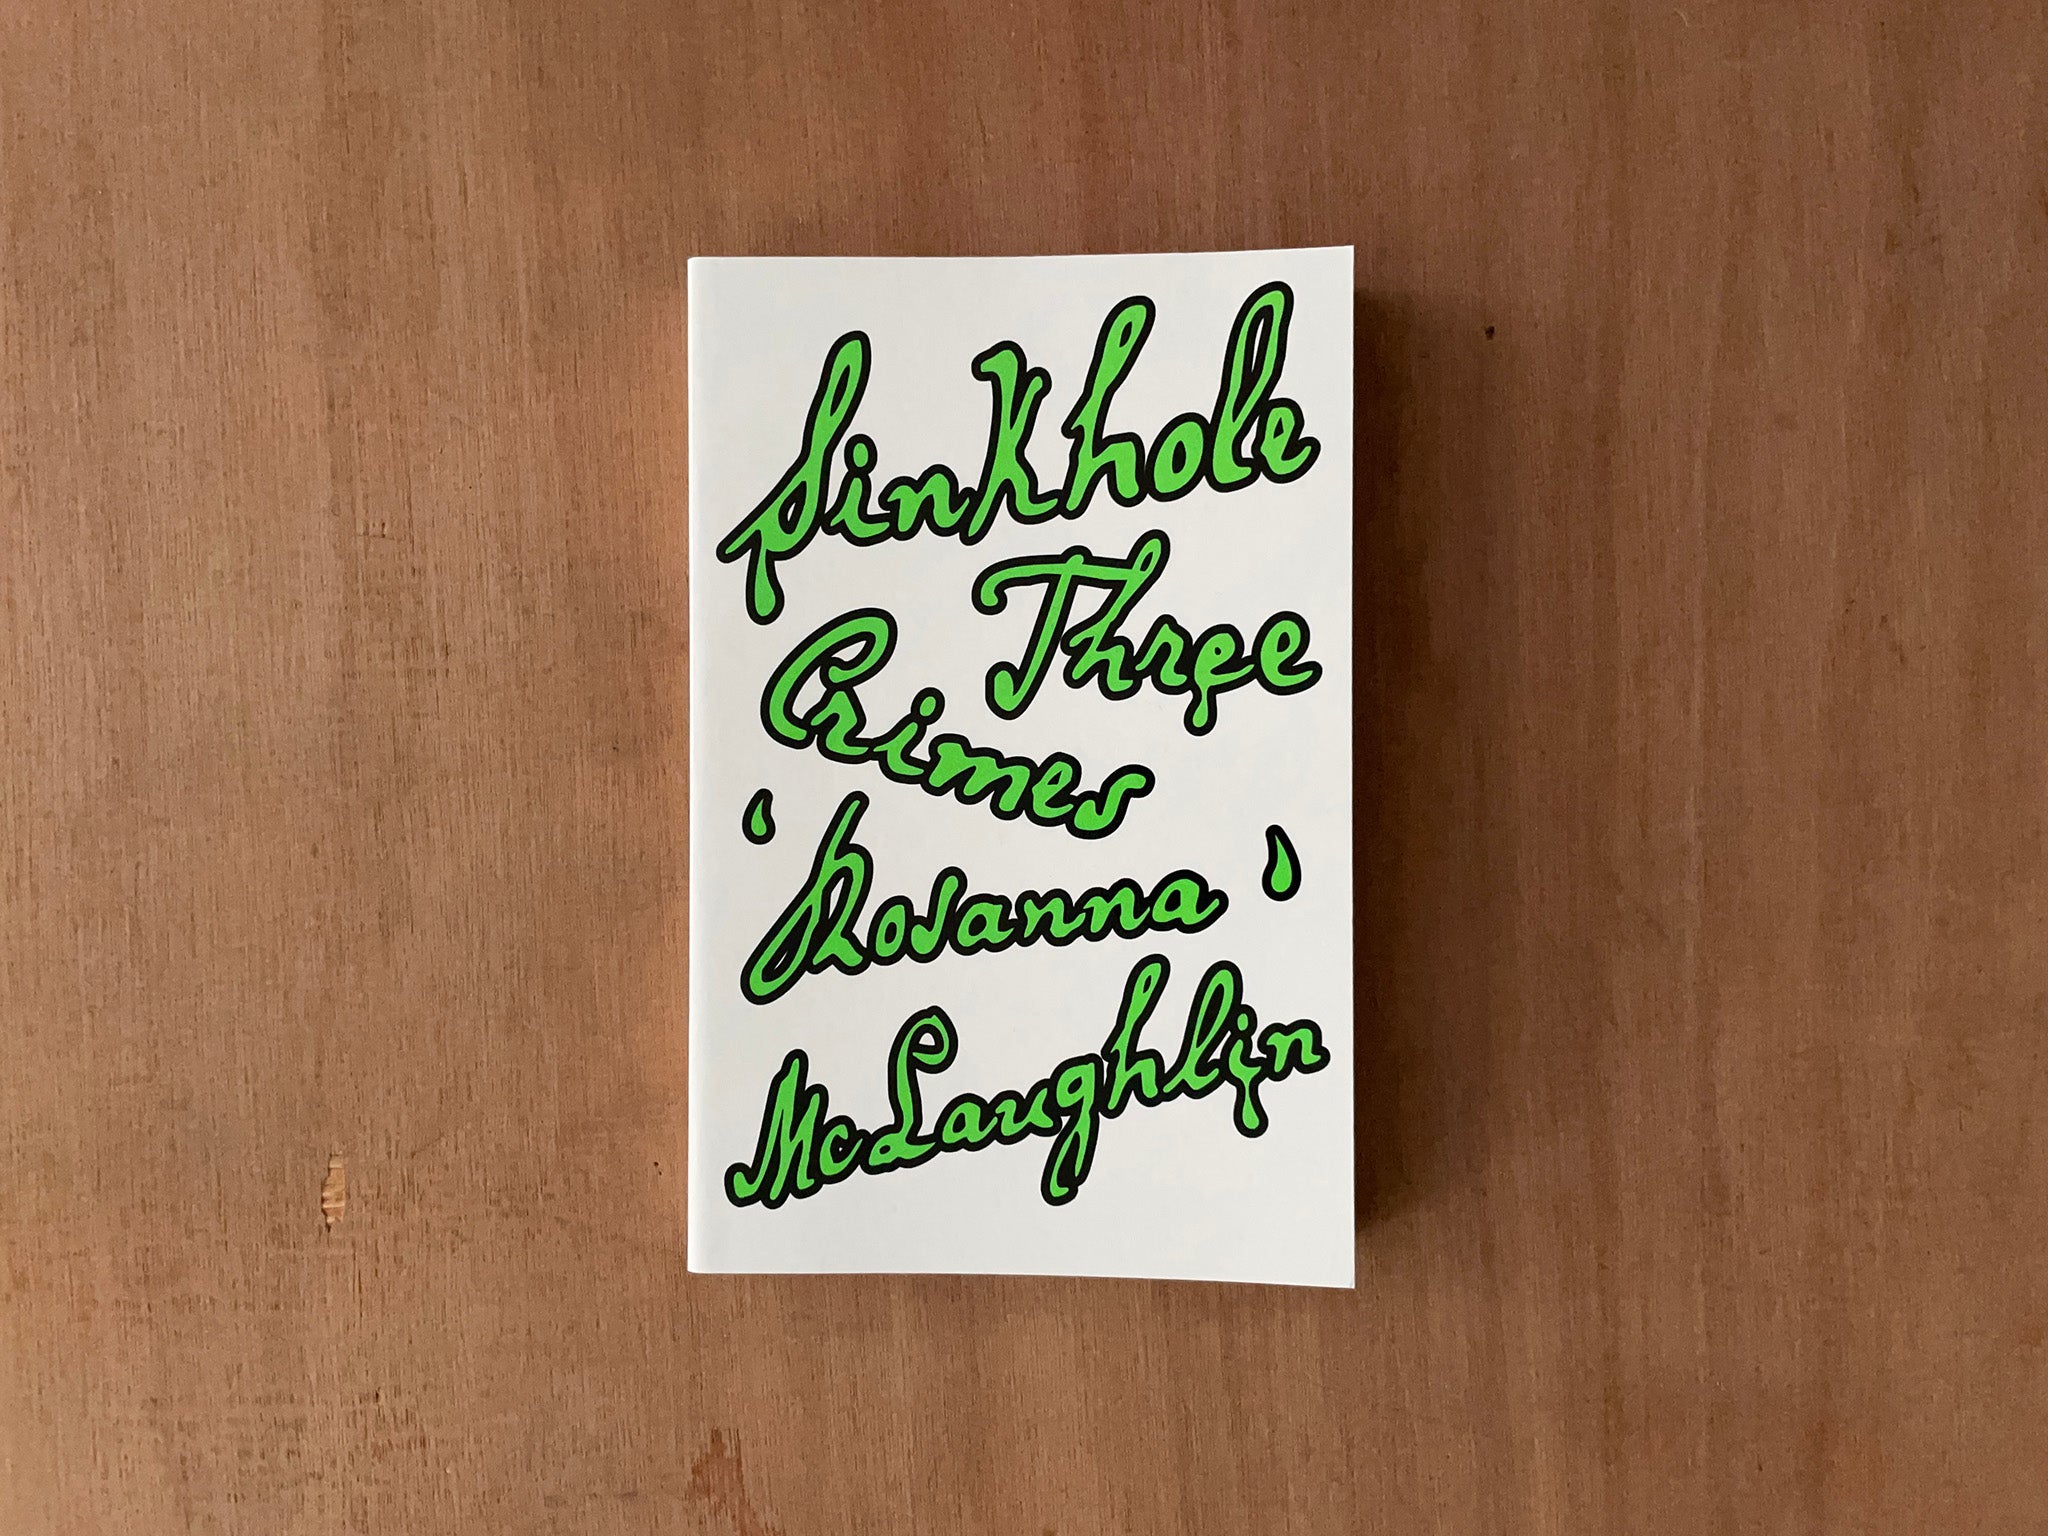 Sinkhole
Three
Crimes
Rosanna
McLaughlin